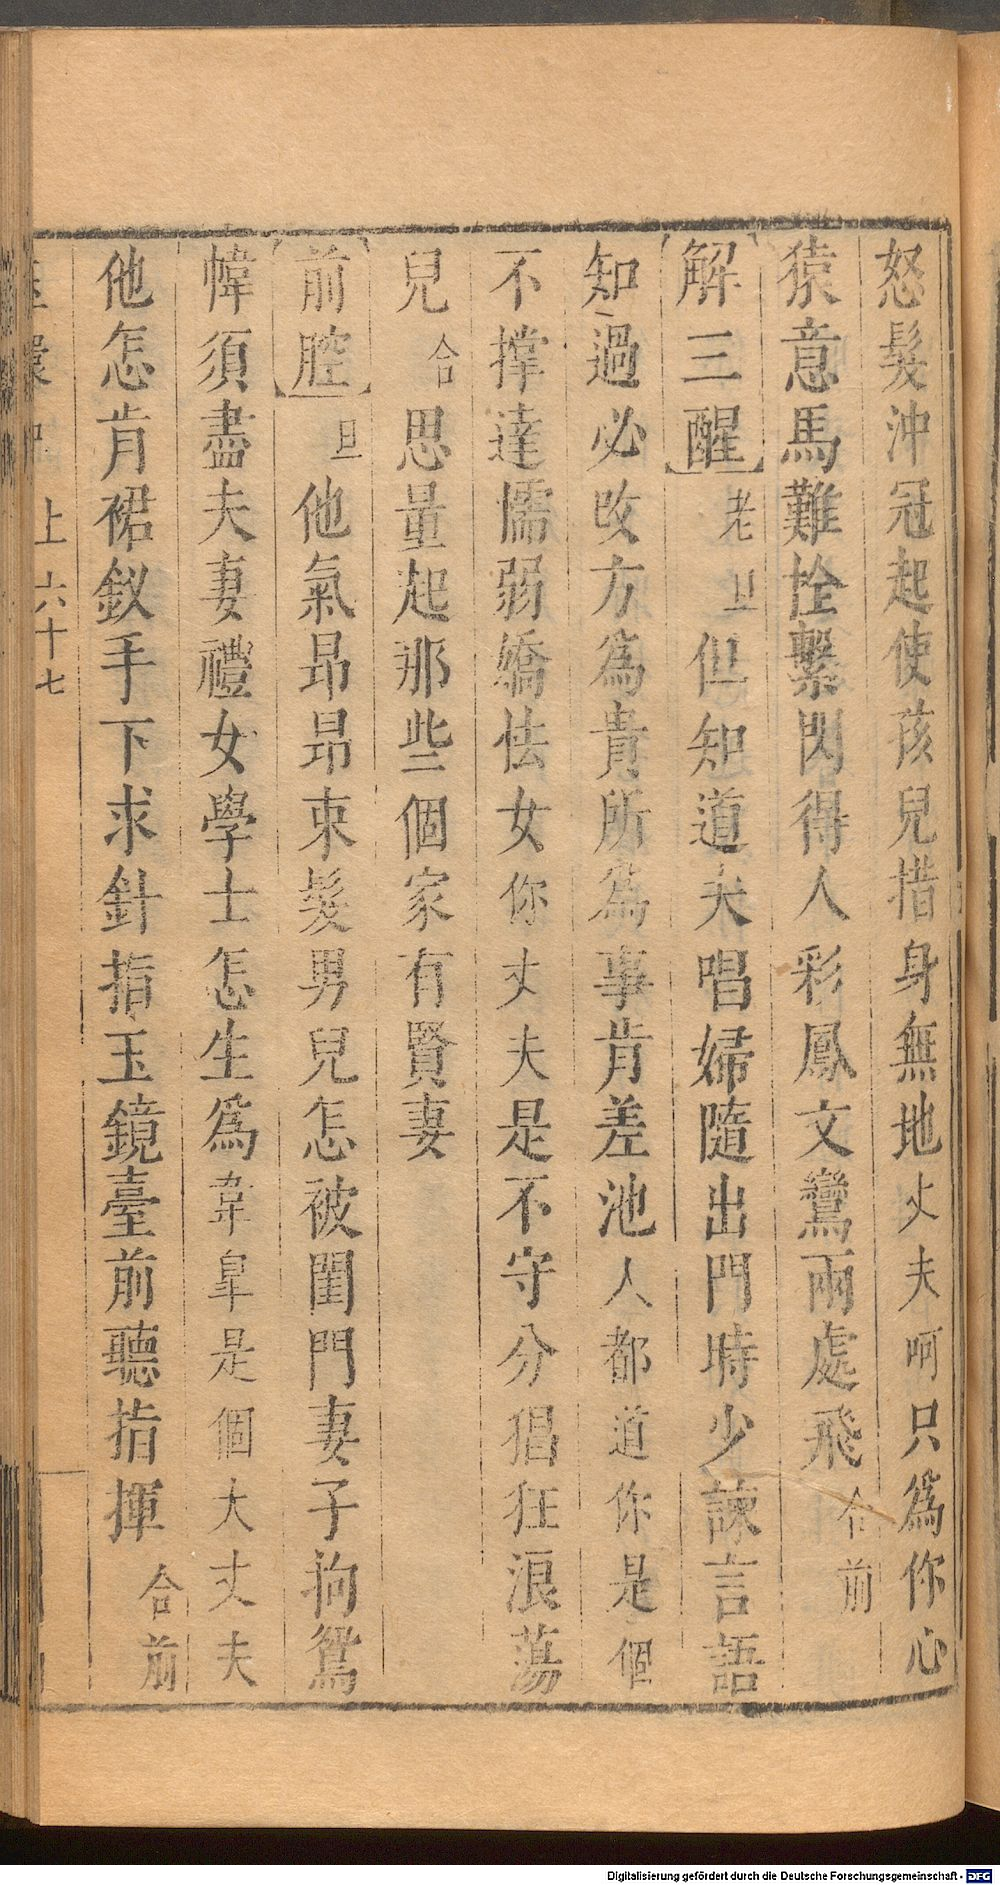 怒髮沖冠起使孩兒措身無地丈夫呵只為你心
猿意馬難拴繫閃得人彩鳳文鸞兩處飛合前
解三醒老旦但知道夫唱婦隨出門時少諫言語
知過必改方為貴所為事肯差池人都道你是個
不撑達懦弱嬌怯女你丈夫是不守分猖狂浪蕩
兒合思量起那些個家有賢妻
前腔旦他氣昂昂束髮男兒怎被閨門妻子拘鴛
幃須盡夫妻禮女學士怎生為韋臯是個大丈夫
他怎肯裙釵手下求針指玉鏡臺前聽指揮合前
上 六十七
Digitalisierung gefördert durch die Deutsche Forschungsgemeinschaft - DFG